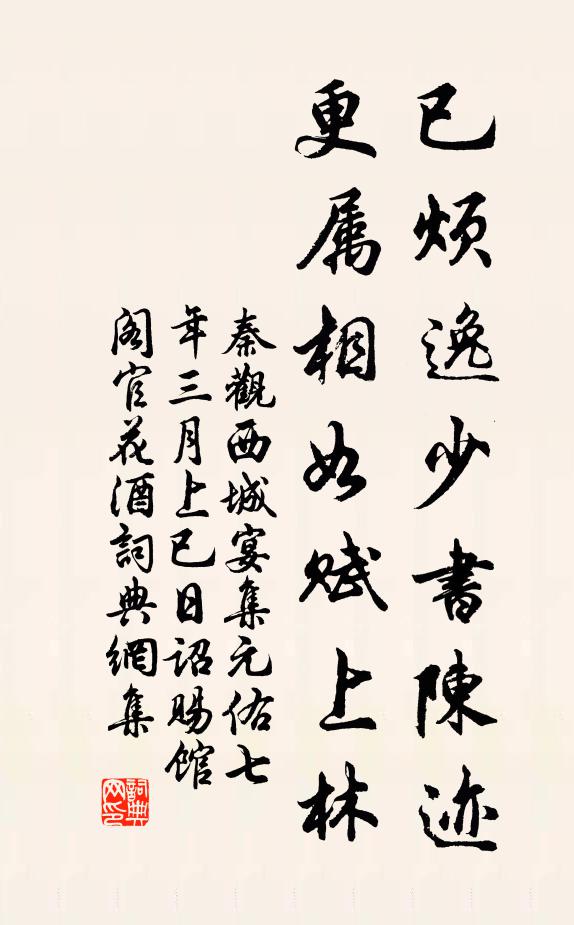 已烦逸少書陳迹
更属相如赋上林
秦觀西城宴集元佑七
年三月上巳日诏赐馆
阁官花酒詞典網集
詞典
网印